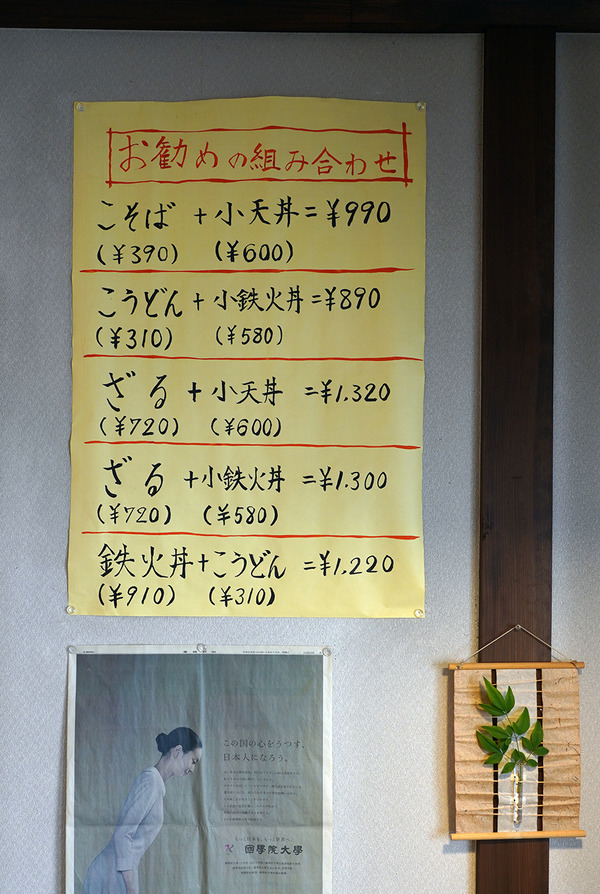 お勧めの組み合わせ
こそば + 小天丼 = ¥990
(¥390) (¥600)
こうどん + 小鉄火丼 = ¥890
(¥310) (¥580)
ざる + 小天丼 = ¥1.320
(¥720) (¥600)
ざる + 小鉄火丼 = ¥1.300
(¥720) (¥580)
鉄火丼 + こうどん = ¥1.220
(¥910) (¥310)
この国の心をうつす、
日本人になろう。
もっと日本を。もっと世界へ。
國學院大學